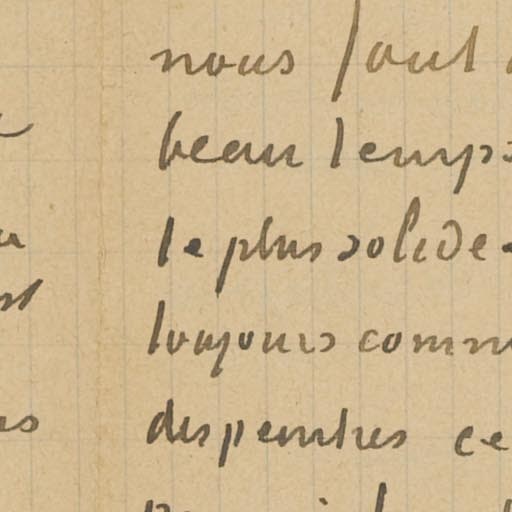 nous font
beau temps
le plus solide
toujours comm
des peintres ce